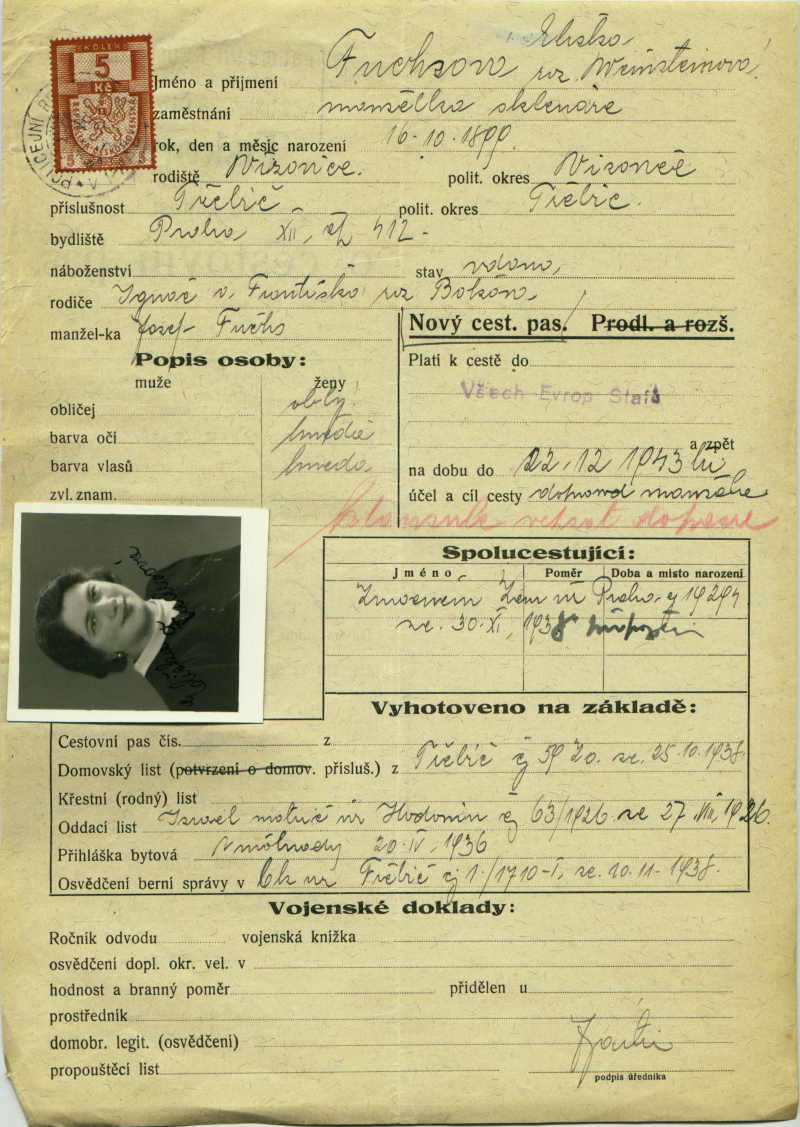 KOLEK
5
Kč
Eliška
Jméno a přijmení Fuchsová roz. Weinsteinová
zaměstnání manželka sklenáře
rok, den a měsíc narození 16-10-1899
rodiště Vizovice. polit. okres
příslušnost Třebíč polit. okres Třebíč.
bydliště Praha XII, 412-
náboženství stav vdaná,
rodiče Ignác a Františka roz
manžel-ka Josef Fuchs
Nový cest. pas. Prodl. a rozš.
Popis osoby:
muže ženy
Platí k cestě do
Všech Evrop Států
obličej oblý
barva očí hnědé
barva vlasů hnědá
zvl. znam.
a zpět
na dobu do 22.12 1943
účel a cíl cesty manžela
Spolucestující:
jméno Poměr Doba a misto narození
Praha
ze. 30.XI, 1938
Vyhotoveno na základě:
Cestovní pas čís. z
Domovský list (potvrzení o domov. přísluš.) z Třebíč čj 5920. ze. 25.10.1938.
Křestní (rodný) list
Oddací list Israel Hodonín čj 63/1926 ze 27. 1926.
Přihláška bytová 20.IV, 1936
Osvědčení berní správy v Třebíč čj 1./1710-I, ze. 10.11-1938.
Vojenské doklady:
Ročník odvodu vojenská knížka
osvědčení dopl. okr. vel. v
hodnost a branný poměr přidělen u
prostředník
domobr. legit. (osvědčení)
propouštěcí list
podpis úředníka